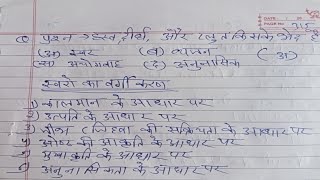 DATE
PAGE NO 215
प्रश्न → ह्रस्व, दीर्घ, और प्लुत किसके भेद है
(अ) स्वर (ब) व्यंजन (अ)
(स) अयोगवाह (द) अनुनासिक
स्वरो का वर्गीकरण
1) कालमान के आधार पर
2) उत्पति के आधार पर
3) जीभ (जिह्वा) की सक्रियता के आधार पर
4) ओष्ठ की आकृति के आधार पर
5) मुखाकृति के आधार पर
6) अनुनासिकता के आधार पर